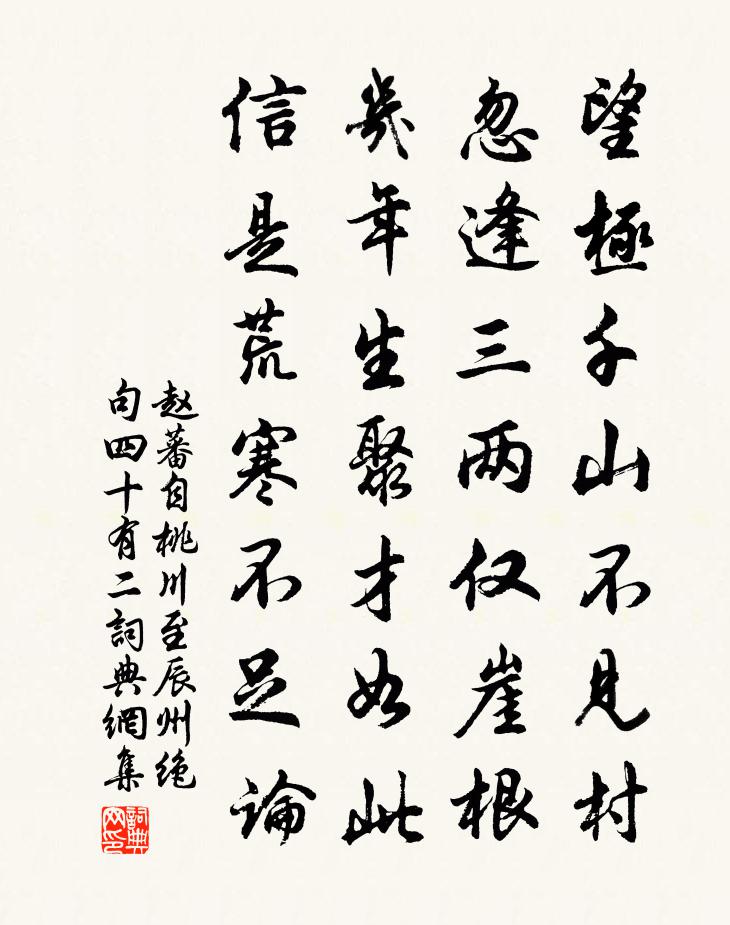 望極千山不見村
忽逢三两仅崖根
幾年生聚才如此
信是荒寒不足論
赵蕃自桃川至辰州绝
句四十有二詞典網集
詞典
网印